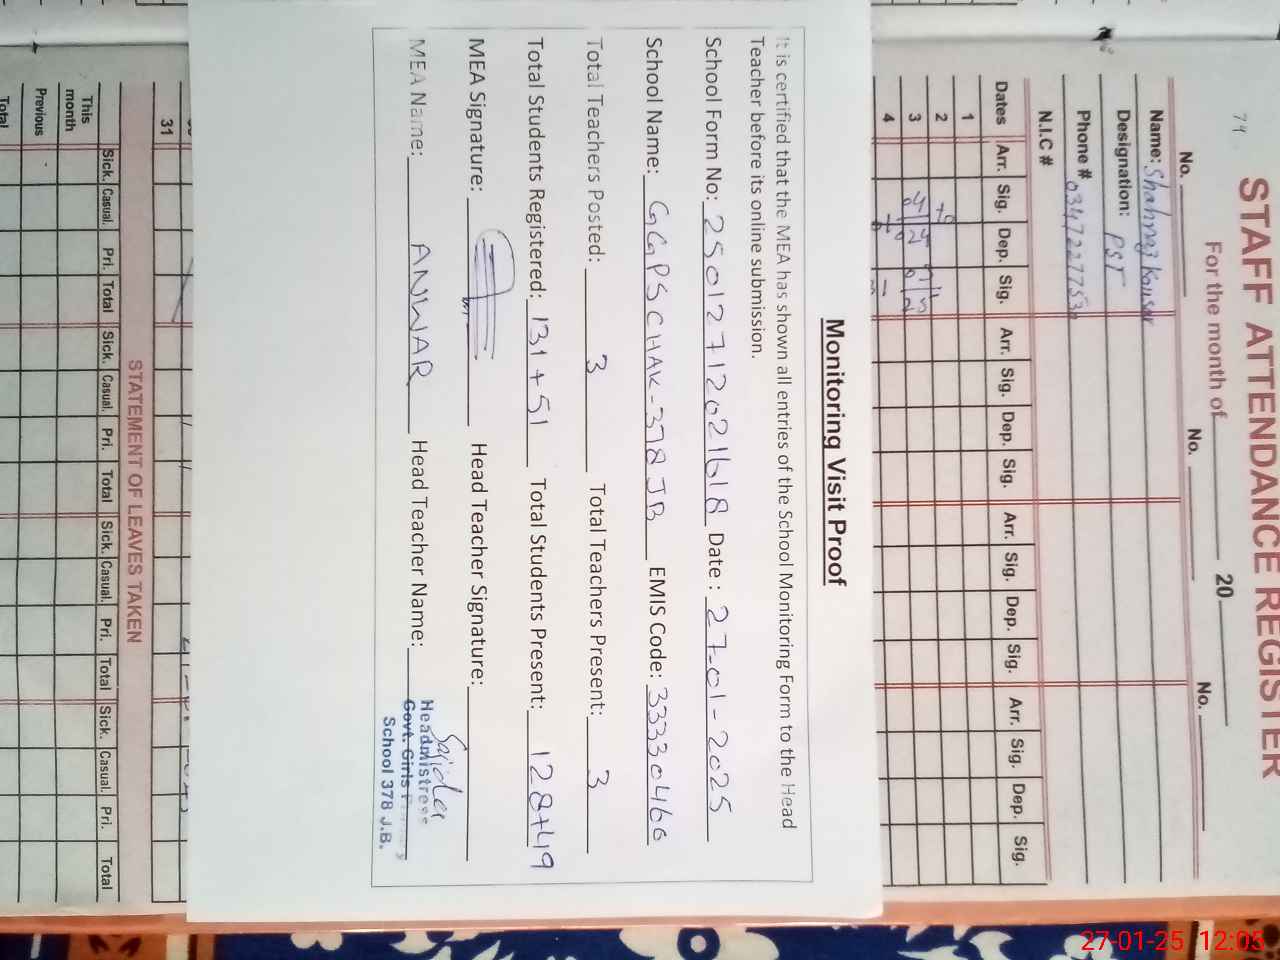 STAFF ATTENDANCE REGISTER
For the month of 20
No. No. No.
Name: Shahnaz Kousar
Designation: PST
Phone # 03472277530
N.I.C #
Dates Arr. Sig. Dep. Sig. Arr. Sig. Dep. Sig. Arr. Sig. Dep. Sig. Arr. Sig. Dep. Sig.
1
2
3
4
Monitoring Visit Proof
It is certified that the MEA has shown all entries of the School Monitoring Form to the Head
Teacher before its online submission.
School Form No: 25012712021618 Date : 27-01-2025
School Name: GGPS CHAK-378 JB EMIS Code: 33330466
Total Teachers Posted: 3 Total Teachers Present: 3
Total Students Registered: 131+51 Total Students Present: 128+49
MEA Signature: Head Teacher Signature:
MEA Name: ANWAR Head Teacher Name:
Sajida
Headmistress
Govt. Girls Primary
School 378 J.B.
31
STATEMENT OF LEAVES TAKEN
Sick. Casual. Pri. Total Sick. Casual. Pri. Total Sick. Casual. Pri. Total Sick. Casual. Pri. Total
This
month
Previous
Total
27-01-25 12:05